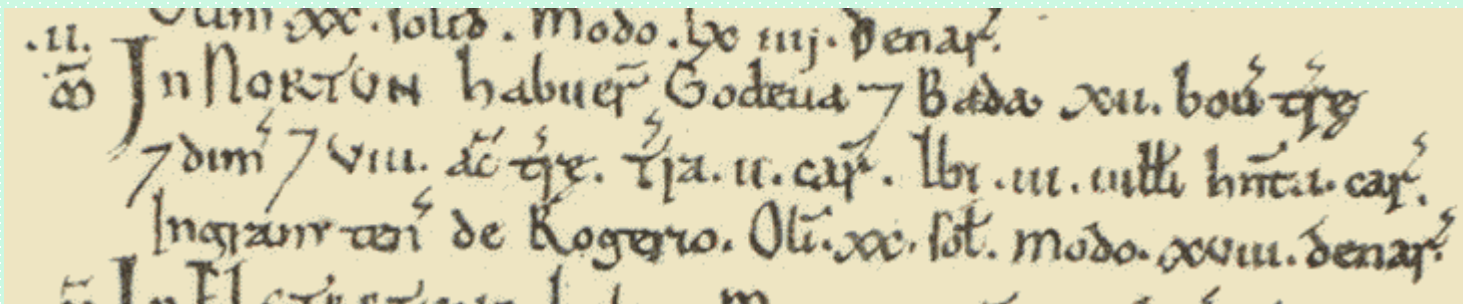 Olim xx. solid. Modo. lx iiij. denar̃.
.II.
m̃ In NORTUN habuer̃ Godeua 7 Bada xii. bou̅ tr̃ę
7 dim̃ 7 VIII. ac̃ tr̃ę. T̃ra. ii. car̃. Ibi .iii. uiłłi hñt .i. car̃.
Ingram ten̄ de Rogerio. Olĩ. xx. soł. modo. xviii. denar̃.